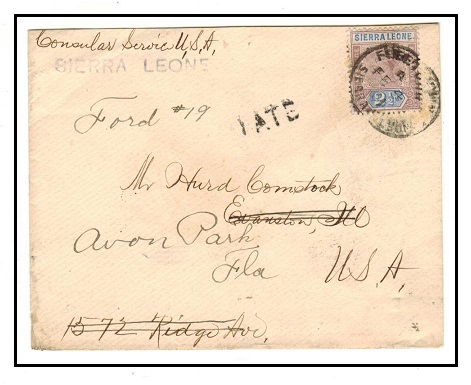 Consular Service U.S.A,
SIERRA LEONE
SIERRA LEONE
2½
Ford #19
LATE
Mr Hurd Comstock
Evanston, Ill
Avon Park
Fla U.S.A,
1572 Ridge Ave,